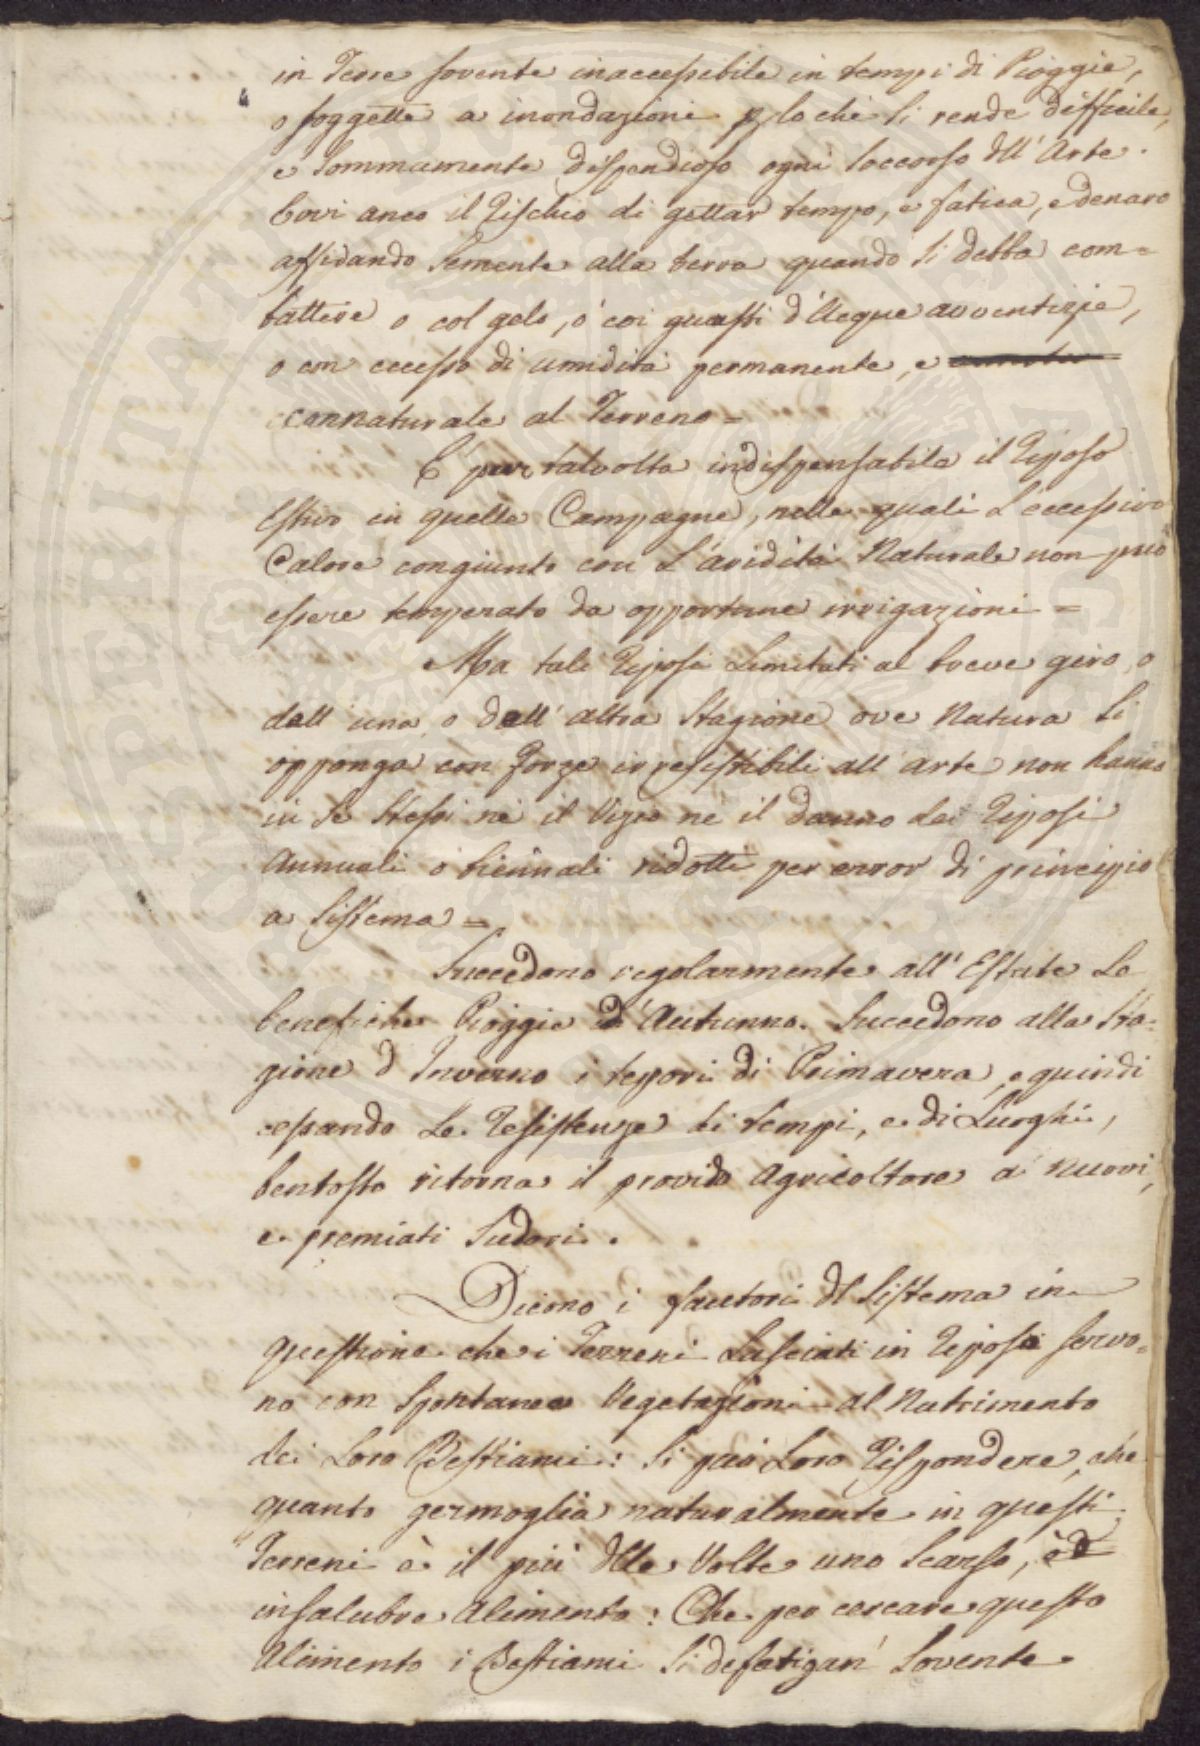 in Terre sovente inaccessibile in tempi di Pioggie,
o soggette a inondazioni p lo che si rende difficile,
e sommamente dispendioso ogni soccorso dll' Arte.
Evvi anco il Rischio di gettar tempo, e fatica, e denaro
affidando semente alla terra quando si debba com=
battere o col gelo, ò coi guasti d'Acque avventizie,
o con eccesso di umidità permanente, e
connaturale al Terreno =
E' pur talvolta indispensabile il Riposo
Estivo in quelle Campagne, nelle quali L'eccessivo
Calore congiunto con L'aridità Naturale non può
essere temperato da opportune irrigazioni =
Ma tali Riposi Limitati al breve giro, o
dall' una, o dall' altra Stagione ove Natura si
opponga con Forze irresistibili all' arte non hanno
in se stessi nè il Vizio nè il danno dei Riposi
Annuali o biennali ridotti per error di principio
a sistema =
Succedono regolarmente all' Estate Le
benefiche Pioggie d' Autunno. Succedono alla Sta=
gione d' Inverno i tepori di Primavera, e quindi
cessando Le Resistenze di tempi, e di Luoghi,
bentosto ritorna il provido Agricoltore a nuovi,
e premiati Sudori.
Dicono i fautori dl Sistema in
questione che i Terreni Lasciati in Riposo servo=
no con spontanee Vegetazioni al Nutrimento
dei Loro Bestiami: Si può Loro Rispondere, che
quanto germoglia naturalmente in questi
Terreni è il più dlle Volte uno scarso, ed
insalubre Alimento: Che per cercare questo
Alimento i Bestiami Si defatigan' Sovente